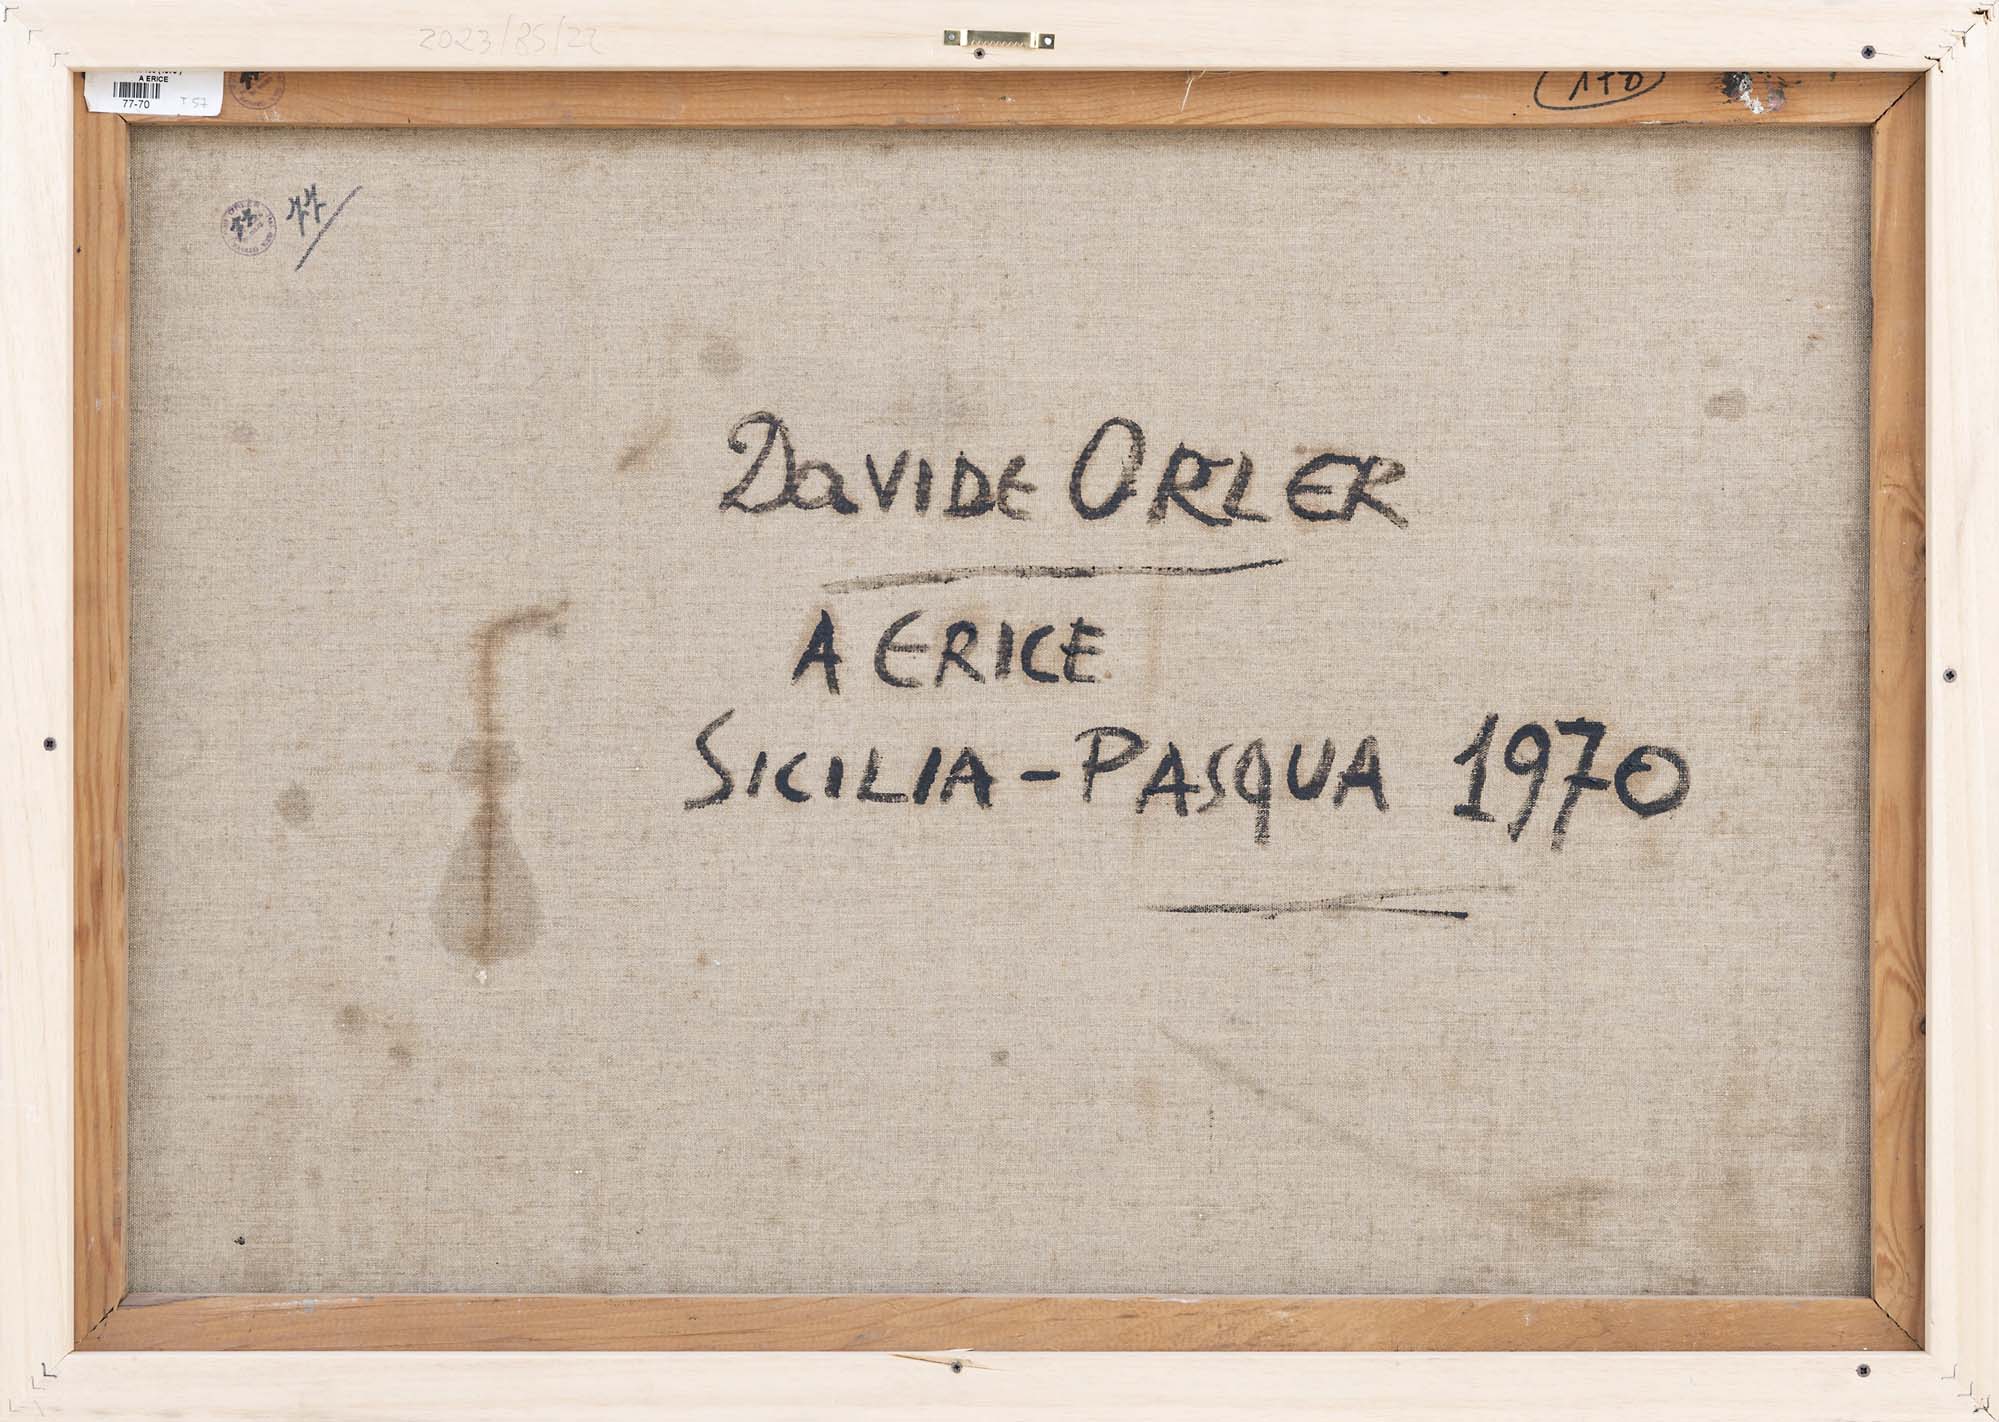 2023/85/22
A ERICE
77-70 T 57
170
77
77
DaVIDE ORLER
A ERICE
SICILIA - PASQUA 1970